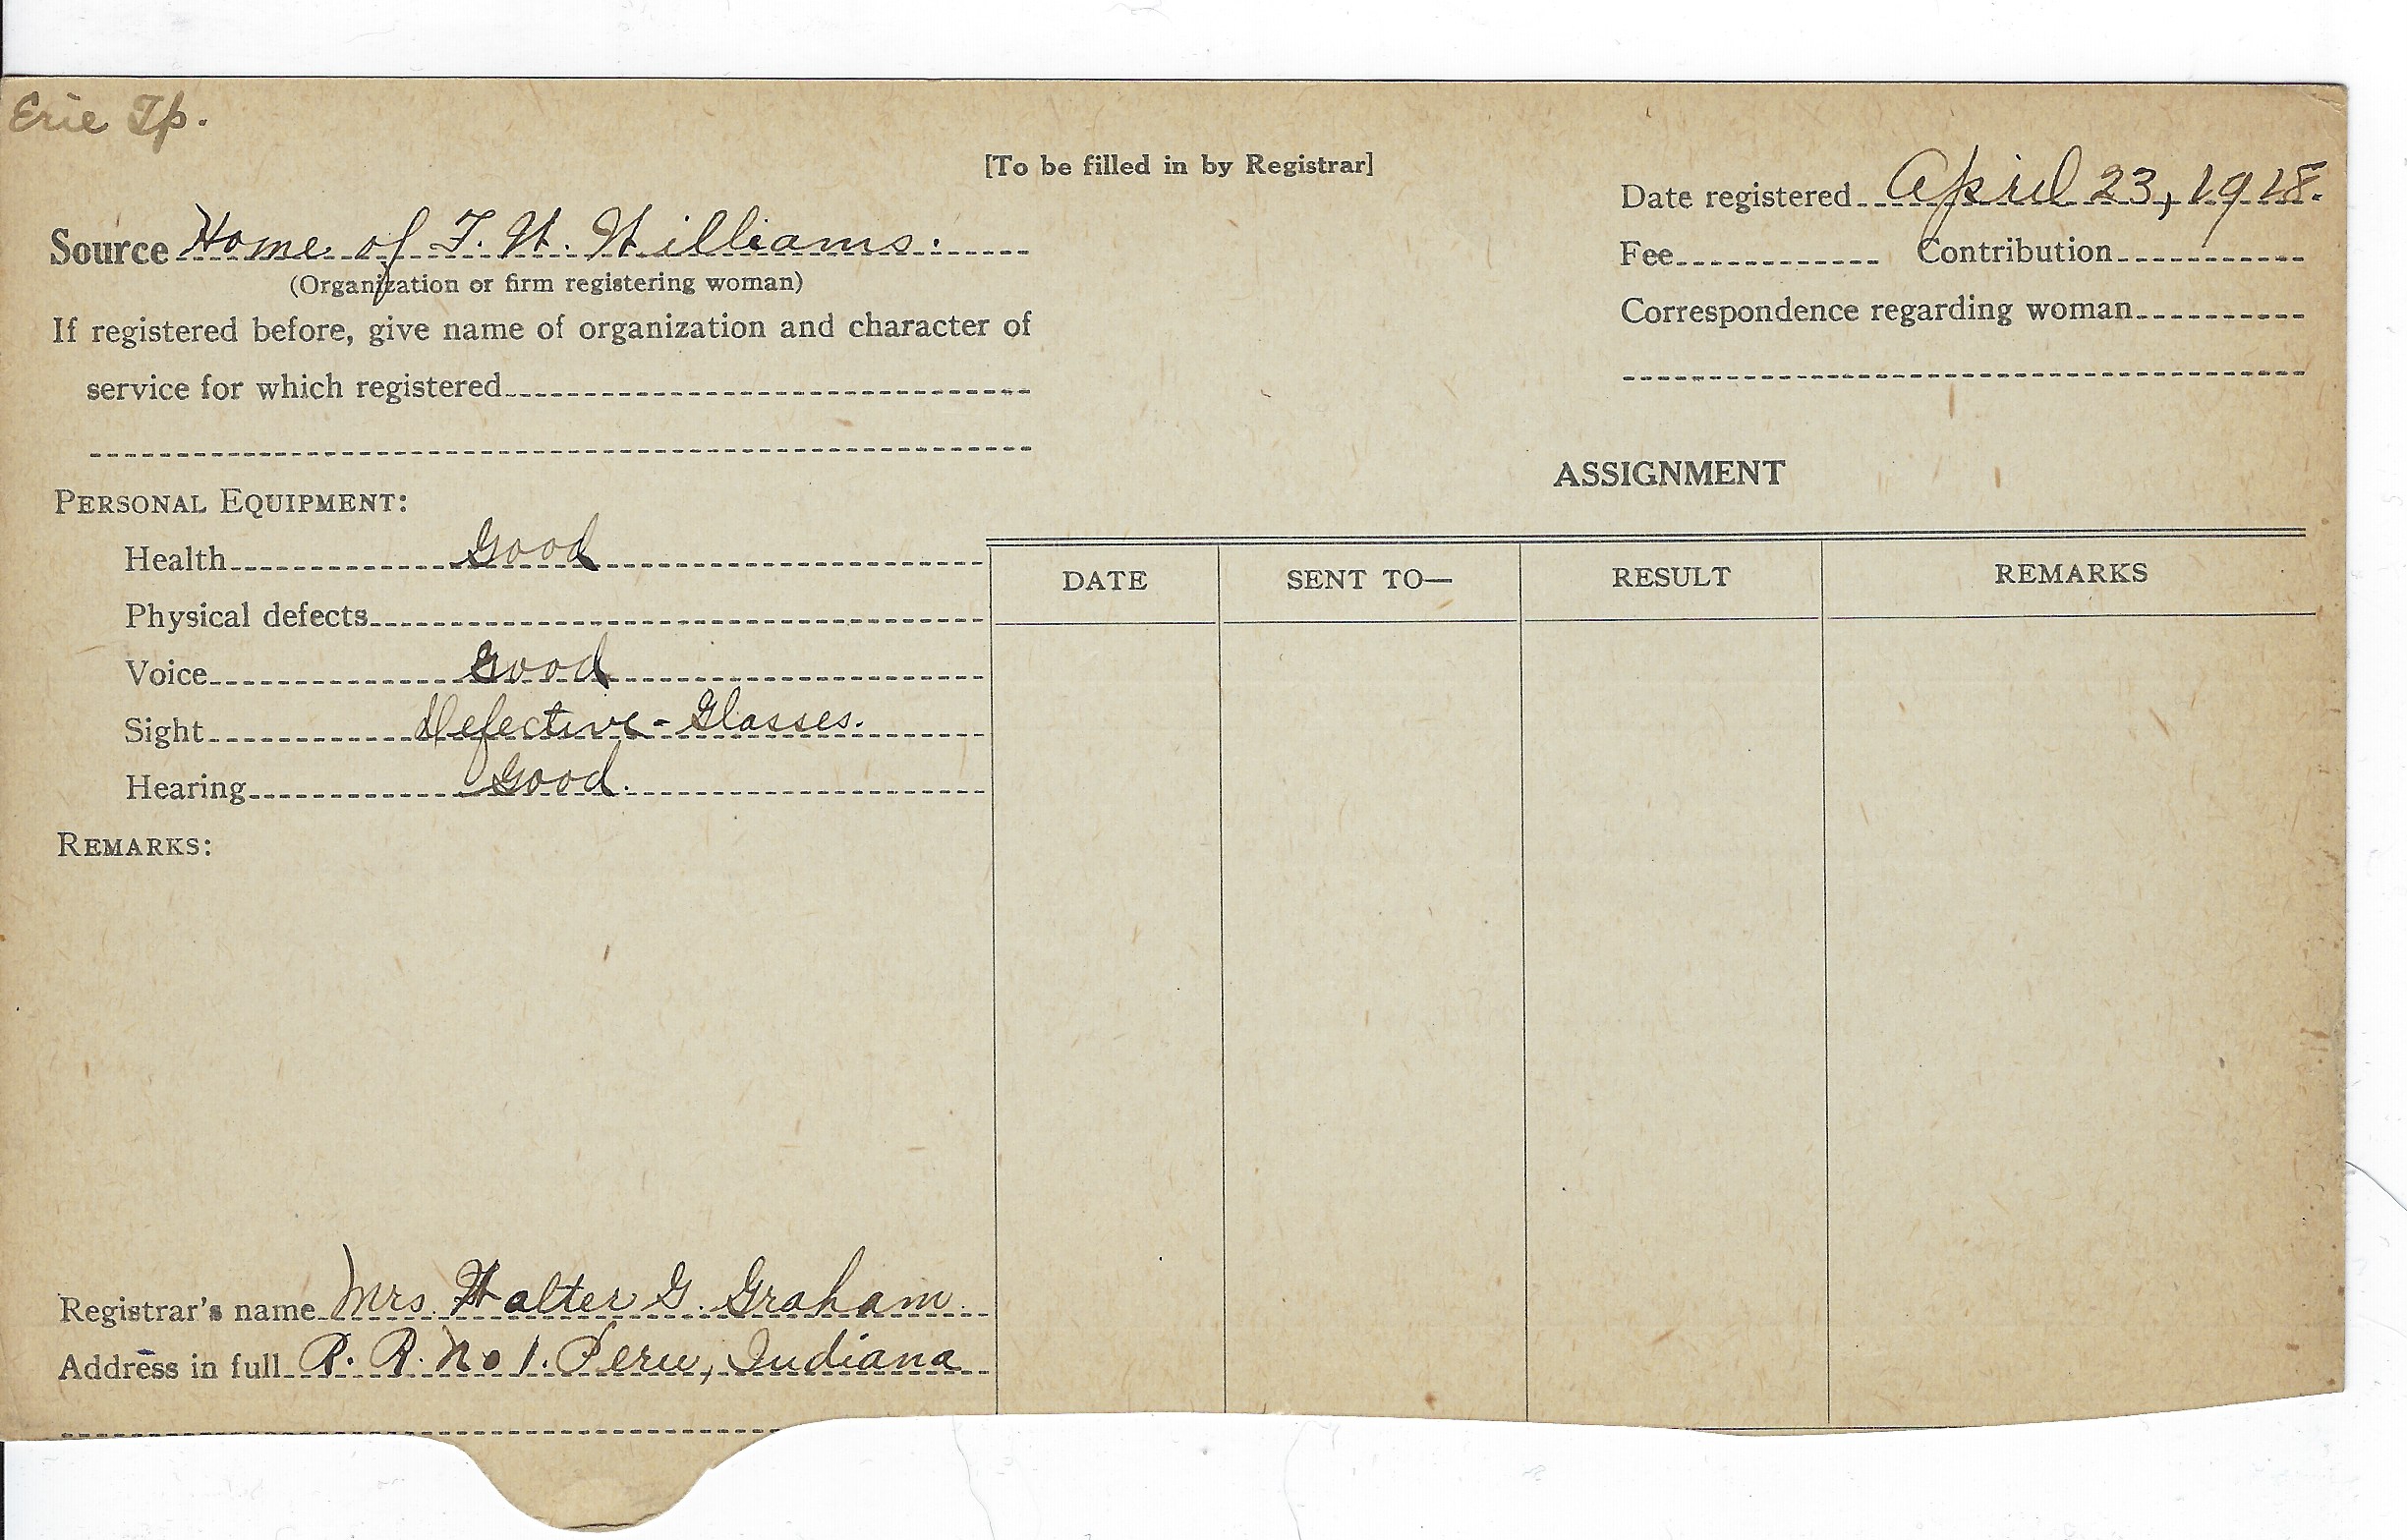 Erie Tp.
[To be filled in by Registrar]
Date registered April 23, 1918.
Source Home of F. W. Williams.
(Organization or firm registering woman)
Fee Contribution
Correspondence regarding woman
If registered before, give name of organization and character of
service for which registered
ASSIGNMENT
PERSONAL EQUIPMENT:
Health Good
Physical defects
Voice Good
Sight Defective - Glasses.
Hearing Good.
DATE SENT TO— RESULT REMARKS
REMARKS:
Registrar's name Mrs. Walter G. Graham.
Address in full R. R. No 1. Peru, Indiana